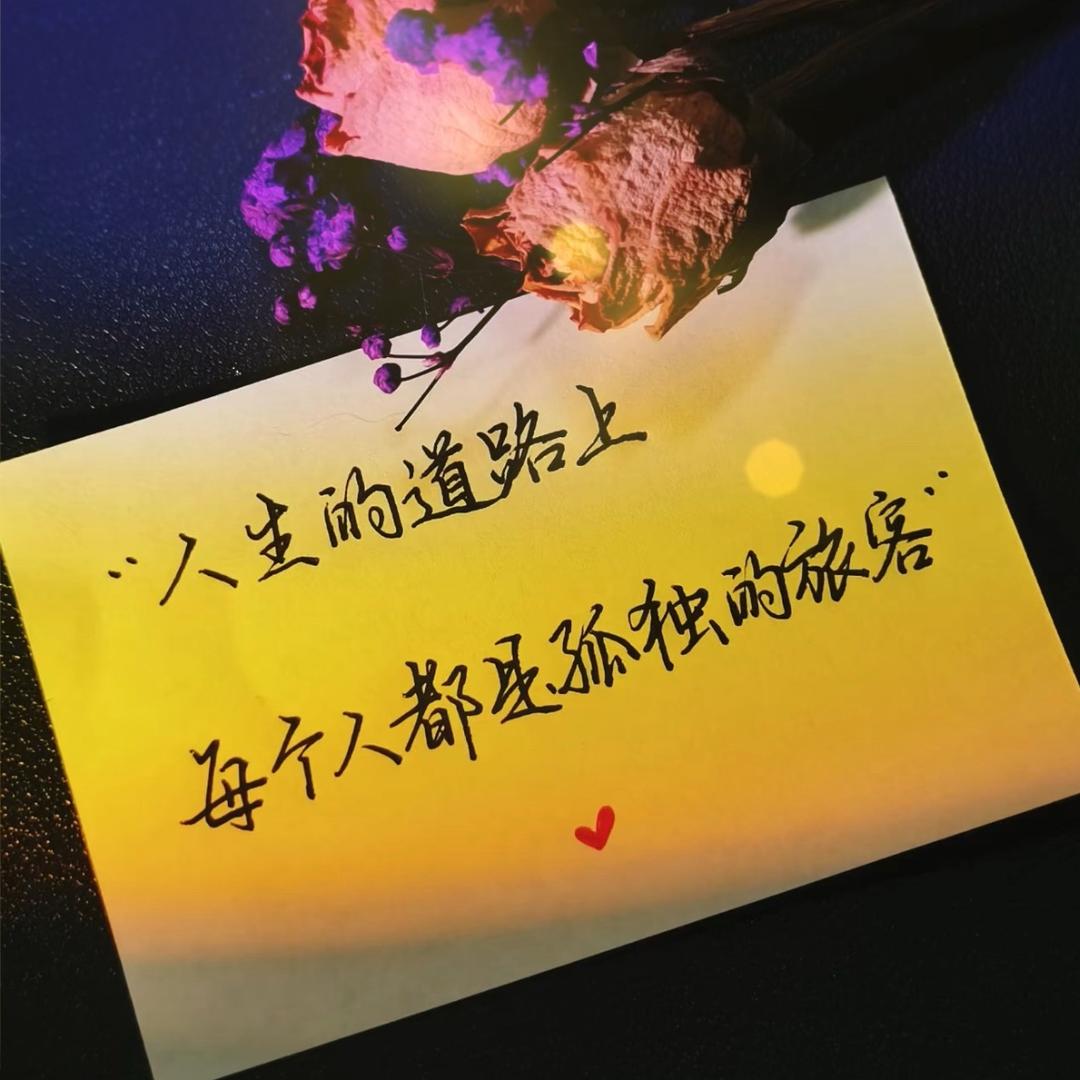 "人生的道路上
每个人都是孤独的旅客"